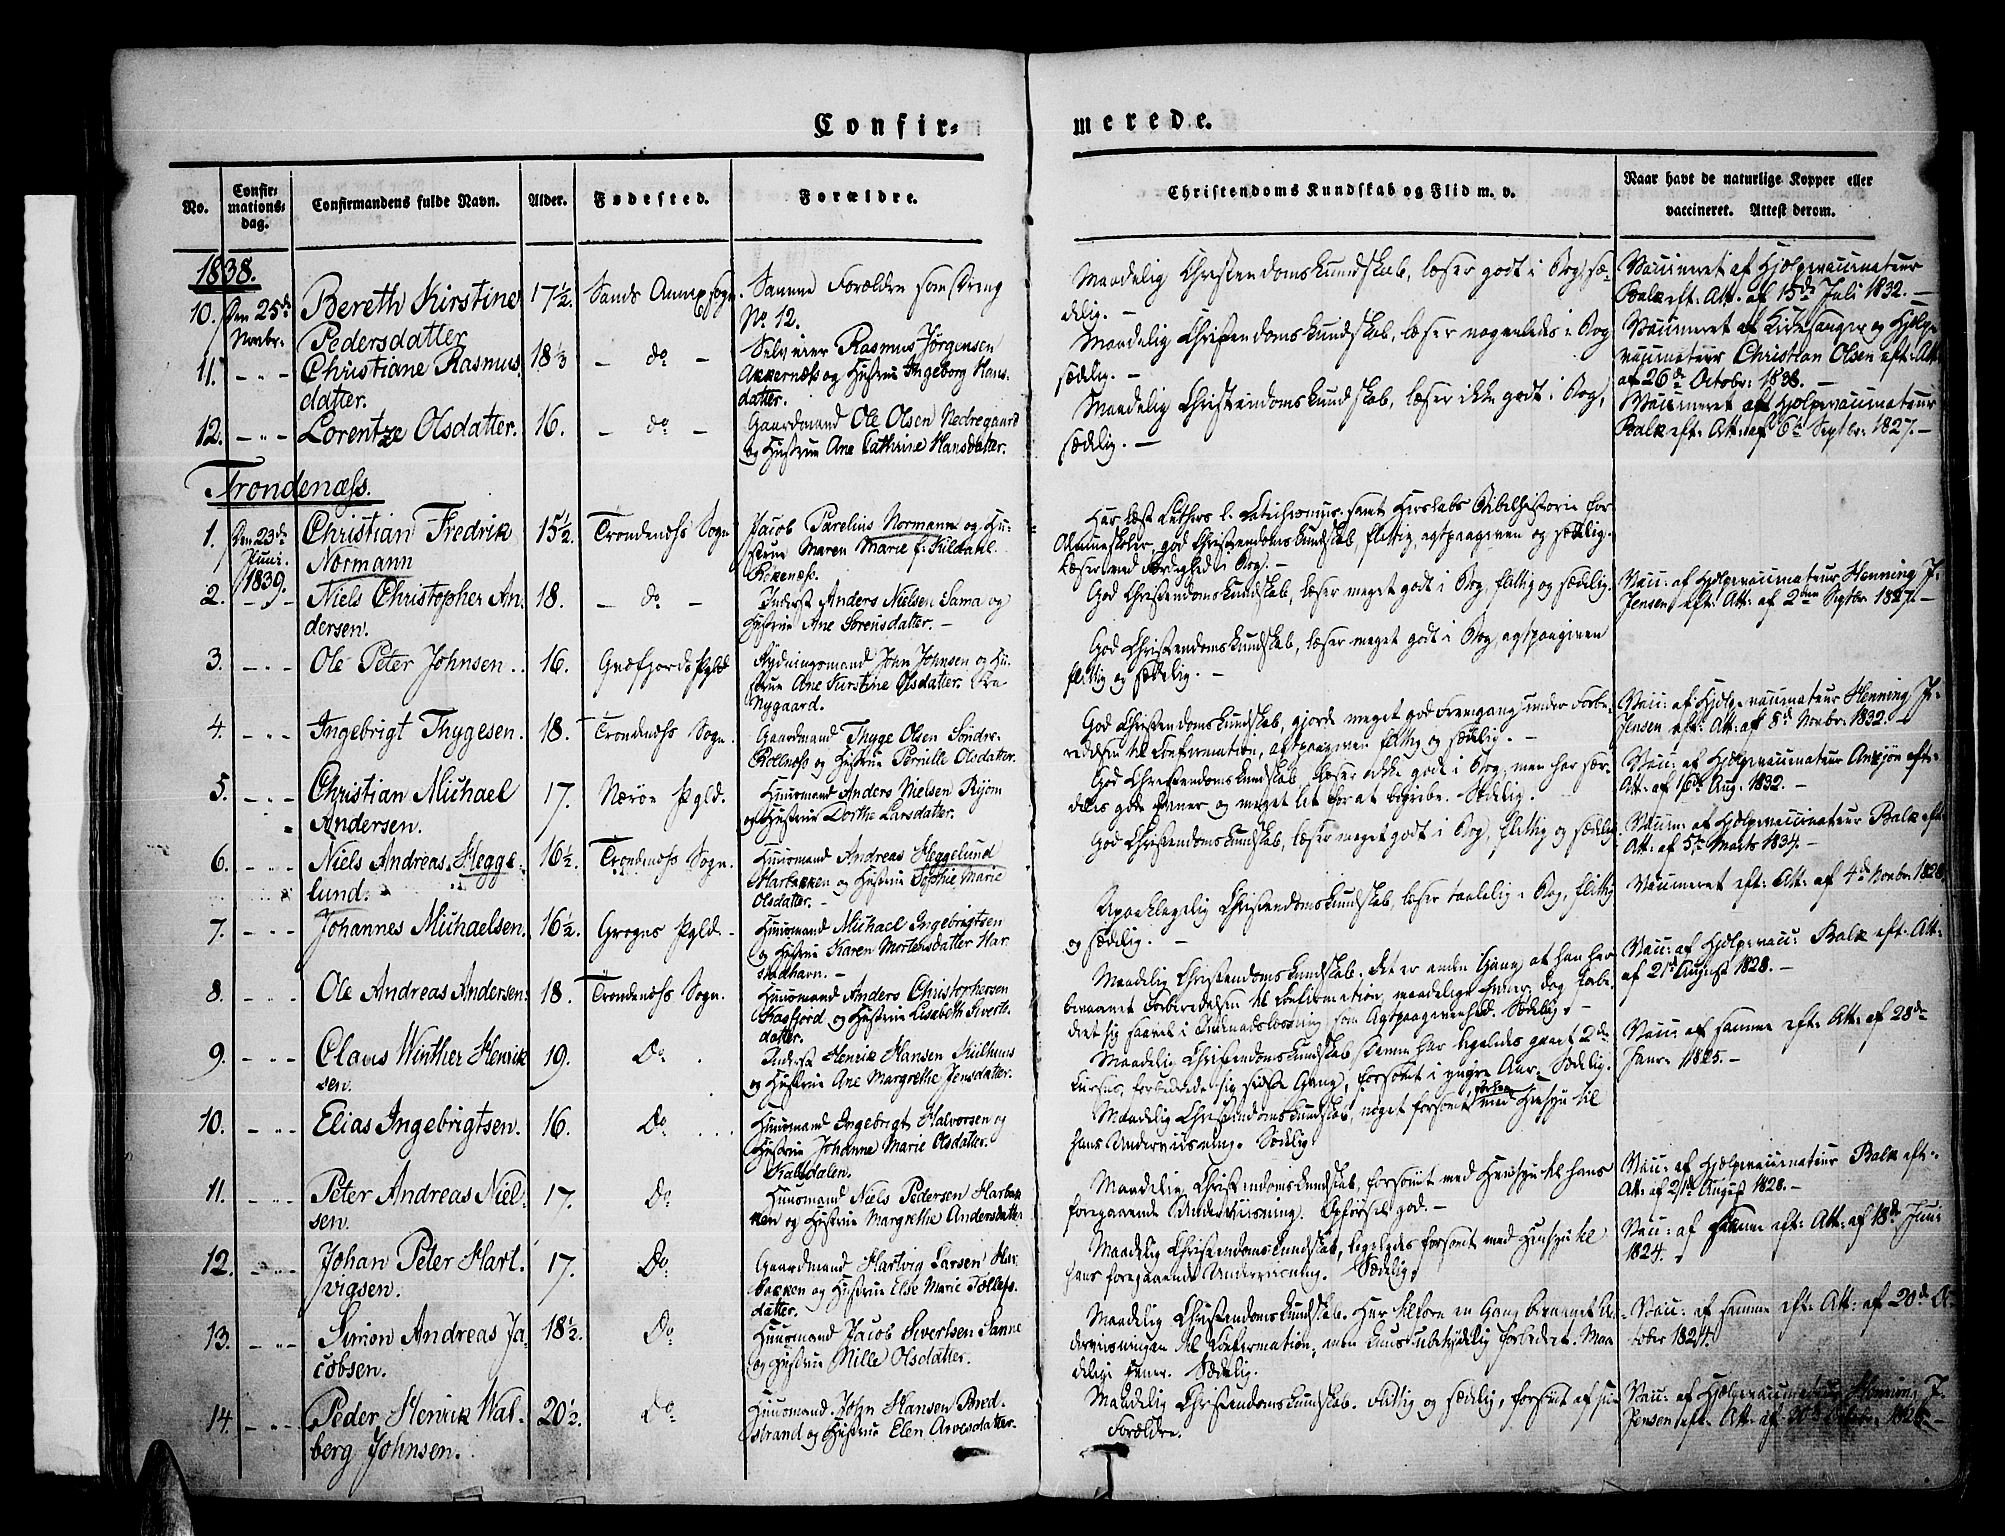 Confir-
merede.
No.
Confir-
mations-
dag.
Confirmandens fulde Navn.
Alder.
Fødested.
Forældre.
Christendoms Kundskab og Flid m. v.
Naar havt de naturlige Kopper eller
vaccineret. Attest derom.
1838.
10. Den 25de Novbr. Bereth Kirstine
Pedersdatter
17 1/2. Sands Annexsogn. Samme Forældre som Dreng
No. 12.
Maadelig Christendomskundskab, læser godt i Bog, sæ-
delig. -
Vaccineret af Hjelpevaccinateur
Balk eft. Att. af 15de Juli 1832. -
11. - " - Christiane Rasmus-
datter.
18 1/3 - do - Selveier Rasmus Jörgensen
Akkernæss og Hustrue Ingeborg Hans-
datter.
Maadelig Christendomskundskab, læser nogenledes i Bog
sædelig. -
Vaccineret af Kirkesanger og Hjelpe-
vaccinateur Christian Olsen eft. Att.
af 26de Octobr. 1838. -
12. - " - Lorentze Olsdatter. 16. - do - Gaardmand Ole Olsen Nedregaard
og Hustrue Ane Cathrine Hansdatter.
Maadelig Christendomskundskab, læser ikke godt i Bog,
sædelig. -
Vaccineret af Hjelpevaccinateur
Balk eft. Att. af 6te Septbr. 1827. -
Trondenæss.
1. Den 23de Juni 1839. Christian Fredrik
Normann
15 1/2 Trondenæss Sogn Jacob Parelius Normann og Hu-
strue Maren Marie f. Kuldahl.
Rökenæs.
Har læst Luthers l. Catechismus samt Herslebs Bibelhistorie for
Almueskoler, god Christendomskundskab, flittig, agtpaagiven og sædelig.
Læser med Færdighed i Bog. -
2. - " - Niels Christopher An-
dersen.
18. - do - Inderst Anders Nielsen Sama og
Hustrue Ane Sörensdatter. -
God Christendomskundskab, læser meget godt i Bog, flittig og sædelig.
Vacc: af Hjelpevaccinateur Henning J.
Jensen eft: Att: af 2den Septbr 1827. -
3. - " - Ole Peter Johnsen. 16. Qvæfjords Pgld Rydningsmand John Johnsen og Hu-
strue Ane Kirstine Olsdatter. Fra
Nygaard.
God Christendomskundskab, læser meget godt i Bog, agtpaagiven
flittig og sædelig. -
4. - " - Ingebrigt Thygesen. 18. Trondenæss Sogn. Gaardmand Thyge Olsen Söndre-
Rollnæss og Hustrue Pernille Olsdatter.
God Christendomskundskab, gjorde meget god Fremgang under Forbe-
redelsen til Confirmation, agtpaagiven flittig og sædelig. -
Vacc: af Hjelpevaccinateur Henning J.
Jensen eft: Att: af 8de Novbr 1832. -
5. - " - Christian Michael
Andersen.
17. Nærøe Pgld. Huusmand Anders Nielsen Rijom
og Hustrue Dorthe Larsdatter.
God Christendomskundskab, læser ikke godt i Bog, men har sær-
deles gode Evner og meget let for at begribe. Sædelig.
Vacc: af Hjelpevaccinateur eft:
Att: af 16de Aug. 1832. -
6. - " - Niels Andreas Hegge-
lund.
16 1/2. Trondenæss Sogn. Huusmand Andreas Heggelund
Harbakken og Hustrue Sophie Marie
Olsdatter. -
God Christendomskundskab, læser meget godt i Bog, flittig og sædelig
Vaccin: af Hjelpevaccinateur Balk eft.
Att: af 5te Marts 1834. -
7. - " - Johannes Michaelsen. 16 1/2. Grognes Pgld. - Huusmand Michael Ingebrigtsen
og Hustrue Karen Mortensdatter Har-
stadhavn. -
Upaaklagelig Christendomskundskab, læser taalelig i Bog, flittig
og sædelig. -
Vaccineret eft: Att: af 4de Novbr. 1828
8. - " - Ole Andreas Andersen. 18. Trondenæss Sogn. Huusmand Anders Christophersen
Kasfjord og Hustrue Lisabeth Siverts-
datter.
Maadelig Christendomskundskab. Det er anden Gang at han har
bivaanet Forberedelsen til Confirmation, maadelige Evner, dog forbe-
dret sig saavel i Indenadslæsning som Agtpaagivenhed. Sædelig. -
Vacc: af Hjelpevacc: Balk eft. Att:
af 21de August 1828. -
9. - " - Claus Winther Henrik-
sen.
19. Do. Inderst Henrik Hansen Kiilhuus
og Hustrue Ane Margrethe Jensdatter.
Maadelig Christendomskundskab, denne har ligeledes gaaet 2de
Curser, forbedrede sig sidste Gang, forsömt i yngre Aar. Sædelig.
Vacc: af samme eft: Att: af 28de
Janr. 1825. -
10. - " - Elias Ingebrigtsen. 16. Do. Huusmand Ingebrigt Halvorsen og
Hustrue Johanne Marie Olsdatter.
Kalsdalen.
Maadelig Christendomskundskab, noget forsömt med Hensyn til
hans Underviisning. Sædelig
11. - " - Peter Andreas Niel-
sen.
17. Do. Huusmand Niels Pedersen Harbak-
ken og Hustrue Margrethe Andersdatter
Maadelig Christendomskundskab, forsömt med Hensyn til hans
foregaaende Underviisning. Opförsel god. -
Vacc: af Hjelpevaccinateur Balk eft.
Att: af 21de August 1828. -
12. - " - Johan Peter Hart-
vigsen.
17. Do. Gaardmand Hartvig Larsen Har-
bakken og Hustrue Else Marie Tollefs-
datter.
Maadelig Christendomskundskab, ligeledes forsömt med Hensyn til
hans foregaaende Underviisning. Sædelig.
Vacc: af samme eft: Att: af 18de Juni
1824. -
13. - " - Simon Andreas Ja-
cobsen.
18 1/2. Do Huusmand Jacob Sivertsen Sanne
og Hustrue Mille Olsdatter.
Maadelig Christendomskundskab. Har tilforn en Gang bivaanet Un-
derviisningen til Confirmation, men kuns ubetydelig forbedret. Maa-
delige Evner. Sædelig.
Vacc: af samme eft: Att: af 20de Oc-
tober 1824.
14. - " - Peder Henrik Wal-
berg Johnsen.
20 1/2. Do Huusmand John Hansen Bred-
strand og Hustrue Elen Arvesdatter.
Maadelig Christendomskundskab. Flittig og sædelig, forsömt af sine
Forældre.
Vacc: af Hjelpevaccinateur Henning J.
Jensen eft: Att: af Octobr. -